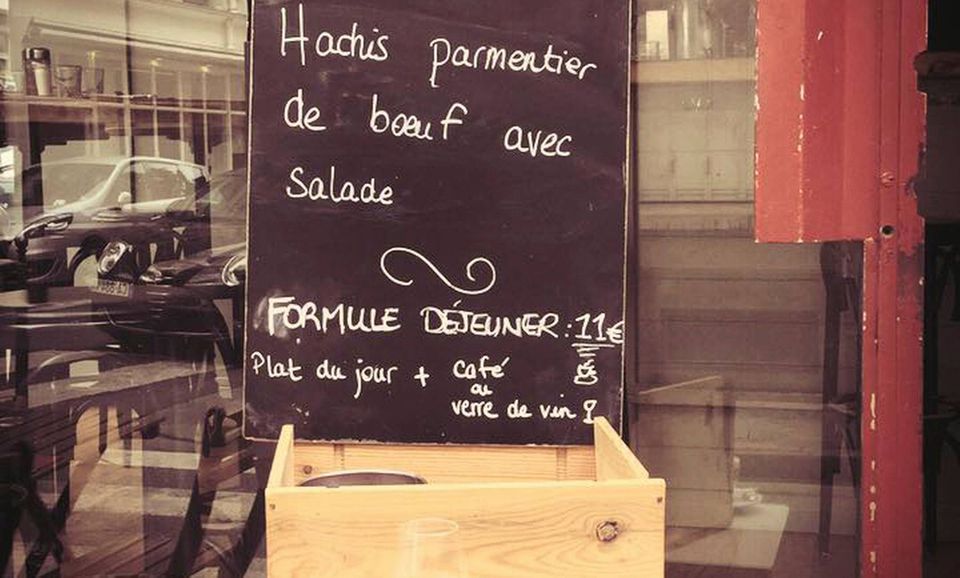 Hachis parmentier
de bœuf avec
Salade
FORMULE DÉJEUNER : 11€
Plat du jour + café
ou
verre de vin